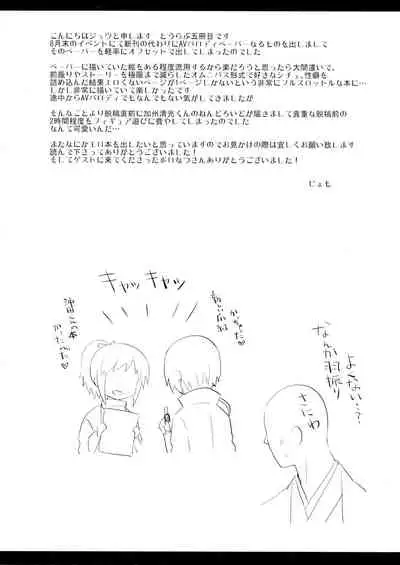 こんにちはジュウと申します　とうらぶ五冊目です
8月末のイベントにて新刊の代わりにAVパロディペーパーなるものを出しまして
そのペーパーを軽率にオフセットで出してしまったのでした
ペーパーに描いていた絵をある程度流用するから楽だろうと思ったら大間違いで、
前振りやストーリーを極限まで減らしたオムニバス形式で好きなシチュ、性癖を
詰め込んだ結果エロくないページが1ページしかないという非常にフルスロットルな本に…
しかし非常に描いていて楽しかったです
途中からAVパロディでもなんでもない気がしてきましたが
そんなことより脱稿直前に加州清光くんのねんどろいどが届きまして貴重な脱稿前の
2時間程度をフィギュア遊びに費やしてしまったのでした
なんて可愛いんだ…
またなにかエロ本を出したいと思っていますのでお見かけの際は宜しくお願い致します
読んで下さってありがとうございました！
そしてゲストに来てくださったポロなつさんありがとうございました！
キャッ キャッ
よくない…?
なんか羽振り
さにわ